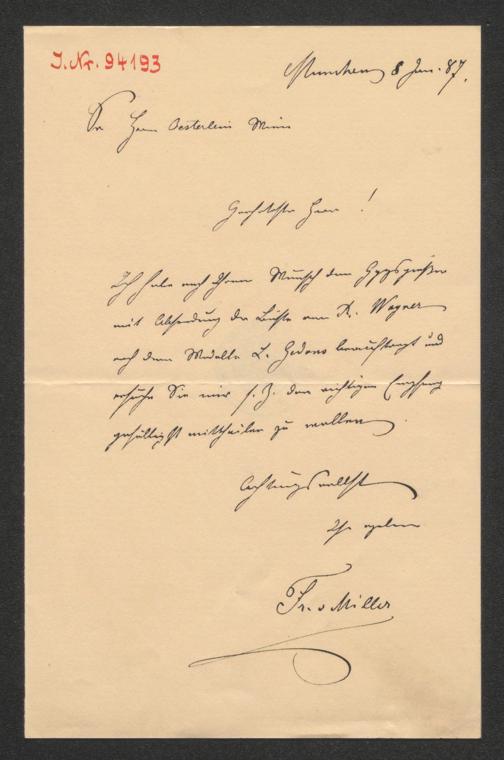 J. Nr. 94193
München 8 Jan. 87.
Sr Herrn Oesterlein Wien
Geehrtester Herr!
Ich habe nach Ihrem Wunsch den Gypsgießer
mit Absendung der Büste von R. Wagner
nach dem Modelle L. Gedons beauftragt und
ersuche Sie mir s. Z. den richtigen Empfang
gefälligst mittheilen zu wollen.
Achtungsvollst
Ihr ergebner
Fr. v Miller